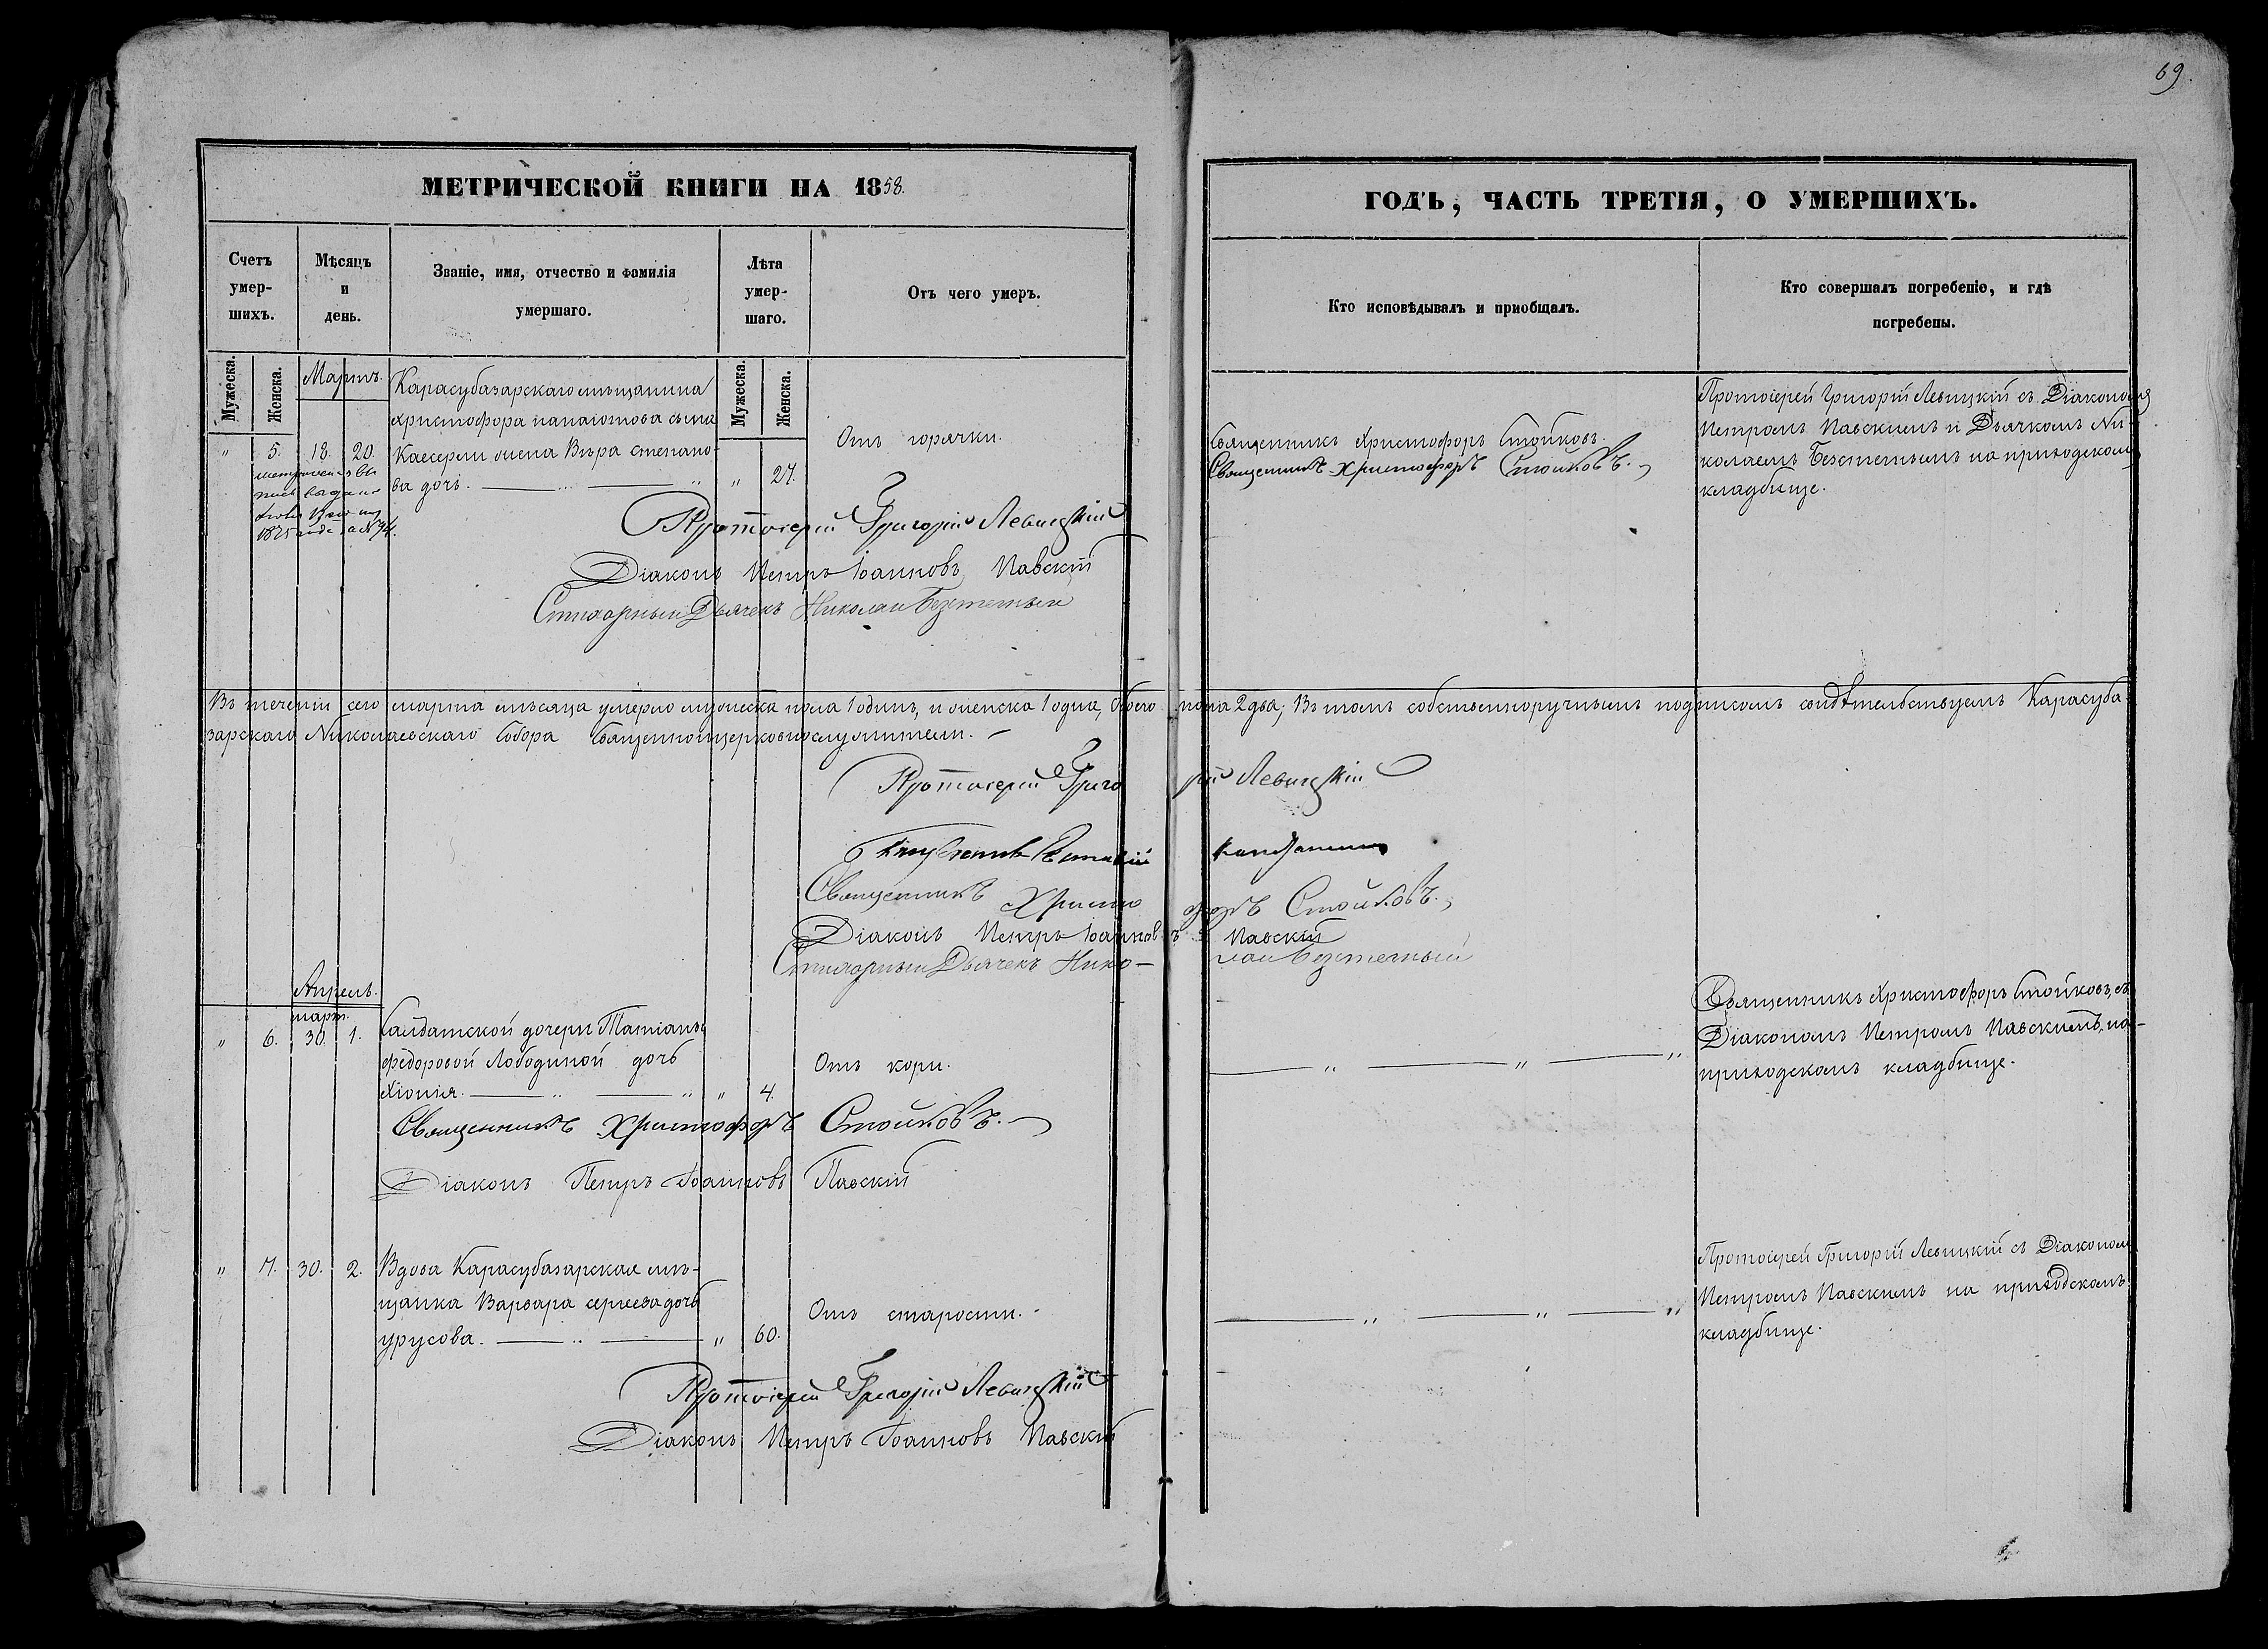 69.
МЕТРИЧЕСКОЙ КНИГИ НА 1858.
ГОДЪ, ЧАСТЬ ТРЕТІЯ, О УМЕРШИХЪ.
Счетъ умер-шихъ.
Мѣсяцъ и день.
Званіе, имя, отчество и фамилія умершаго.
Лѣта умер-шаго.
Отъ чего умеръ.
Кто исповѣдывалъ и пріобщалъ.
Кто совершалъ погребеніе, и гдѣ погребены.
Мужеска.
Женска.
Мужеска.
Женска.
Мартъ.
" 5. 18. 20.
Карасубазарскаго мѣщанина
Христофора Панаіотова сына
Каесерли жена Вѣра степано-
ва дочь. " " 27.
Отъ горячки.
Священникъ Христофоръ Стойковъ.
Священникъ Христофоръ Стойковъ.
Протоіерей Григорій Левицкій съ Діакономъ
Петромъ Павскимъ и Дьячкомъ Ни-
колаемъ Безсметнымъ на приходскомъ
кладбище.
1875 года за № 94.
Протоіерей Григорій Левицкій
Діаконъ Петръ Іоанновъ Павскій
Стихарный Дьячекъ Николай Безсметный
Въ теченіи сего марта мѣсяца умерло мужеска пола 1 одинъ, и женска 1 одна, Обоего пола 2 два; Въ томъ собственноручнымъ подписомъ свидѣтельствуемъ Карасуба-
зарскаго Николаевскаго Собора Священноцерковнослужители. -
Протоіерей Григорій Левицкій
Священникъ Христофоръ Стойковъ.
Діаконъ Петръ Іоанновъ Павскій
Стихарный Дьячекъ Нико-лай Безсметный
Апрель.
март.
" 6. 30. 1.
Салдатской дочери Татіаны
Федоровой Лободиной дочь
Хіонія. " " " 4.
Отъ кори.
" " "
Священникъ Христофоръ Стойковъ, съ
Діакономъ Петромъ Павскимъ, на
приходскомъ кладбище.
Священникъ Христофоръ Стойковъ.
Діаконъ Петръ Іоанновъ Павскій
" 7. 30. 2.
Вдова Карасубазарская мѣ-
щанка Варвара сергеева дочь
урусова. " " 60.
Отъ старости.
" " "
Протоіерей Григорій Левицкій съ Діакономъ
Петромъ Павскимъ на приходскомъ
кладбище.
Протоіерей Григорій Левицкій
Діаконъ Петръ Іоанновъ Павскій